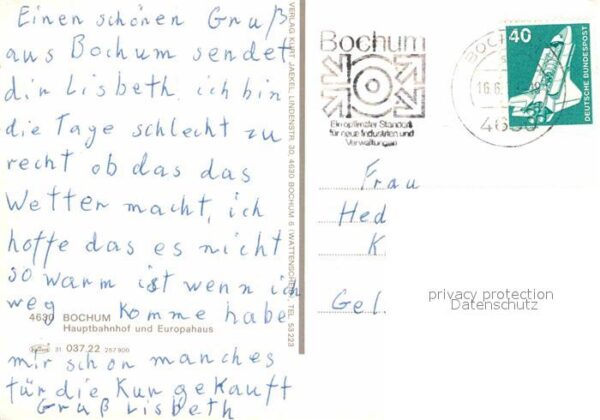 Einen schönen Gruß
aus Bochum sendet
dir Lisbeth. ich bin
die Tage schlecht zu
recht ob das das
Wetter macht, ich
hoffe das es nicht
so warm ist wenn ich
weg komme habe
mir schon manches
für die Kur gekauft
Gruß Lisbeth
4630 BOCHUM
Hauptbahnhof und Europahaus
31 037.22
VERLAG KURT JAEKEL, LINDENSTR. 30, 4630 BOCHUM 6 (WATTENSCHEID), TEL. 53 223
Bochum
Ein optimaler Standort
für neue Industrien und
Verwaltungen
BOCHUM
16.6.
4630
40
DEUTSCHE BUNDESPOST
Frau
Hed
K
Gel.
privacy protection
Datenschutz